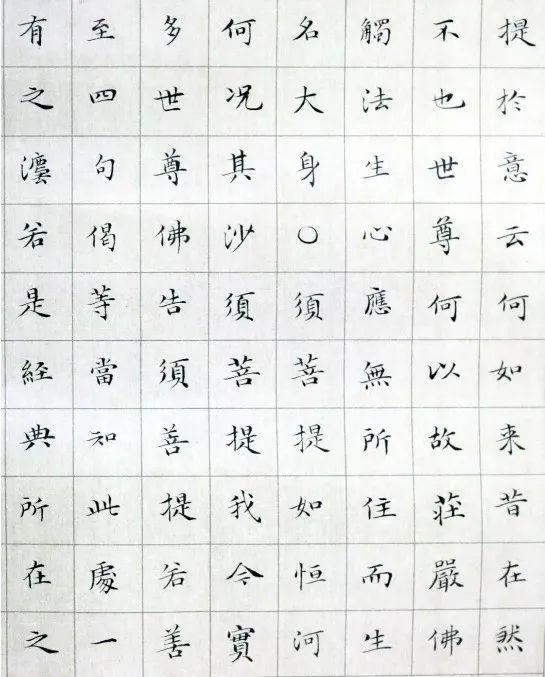 提於意云何如来昔在然
不也世尊何以故莊嚴佛
觸法生心應無所住而生
名大身〇須菩提如恒河
何况其沙須菩提我今實
多世尊佛告須菩提若善
至四句偈等當知此處一
有之若是經典所在之